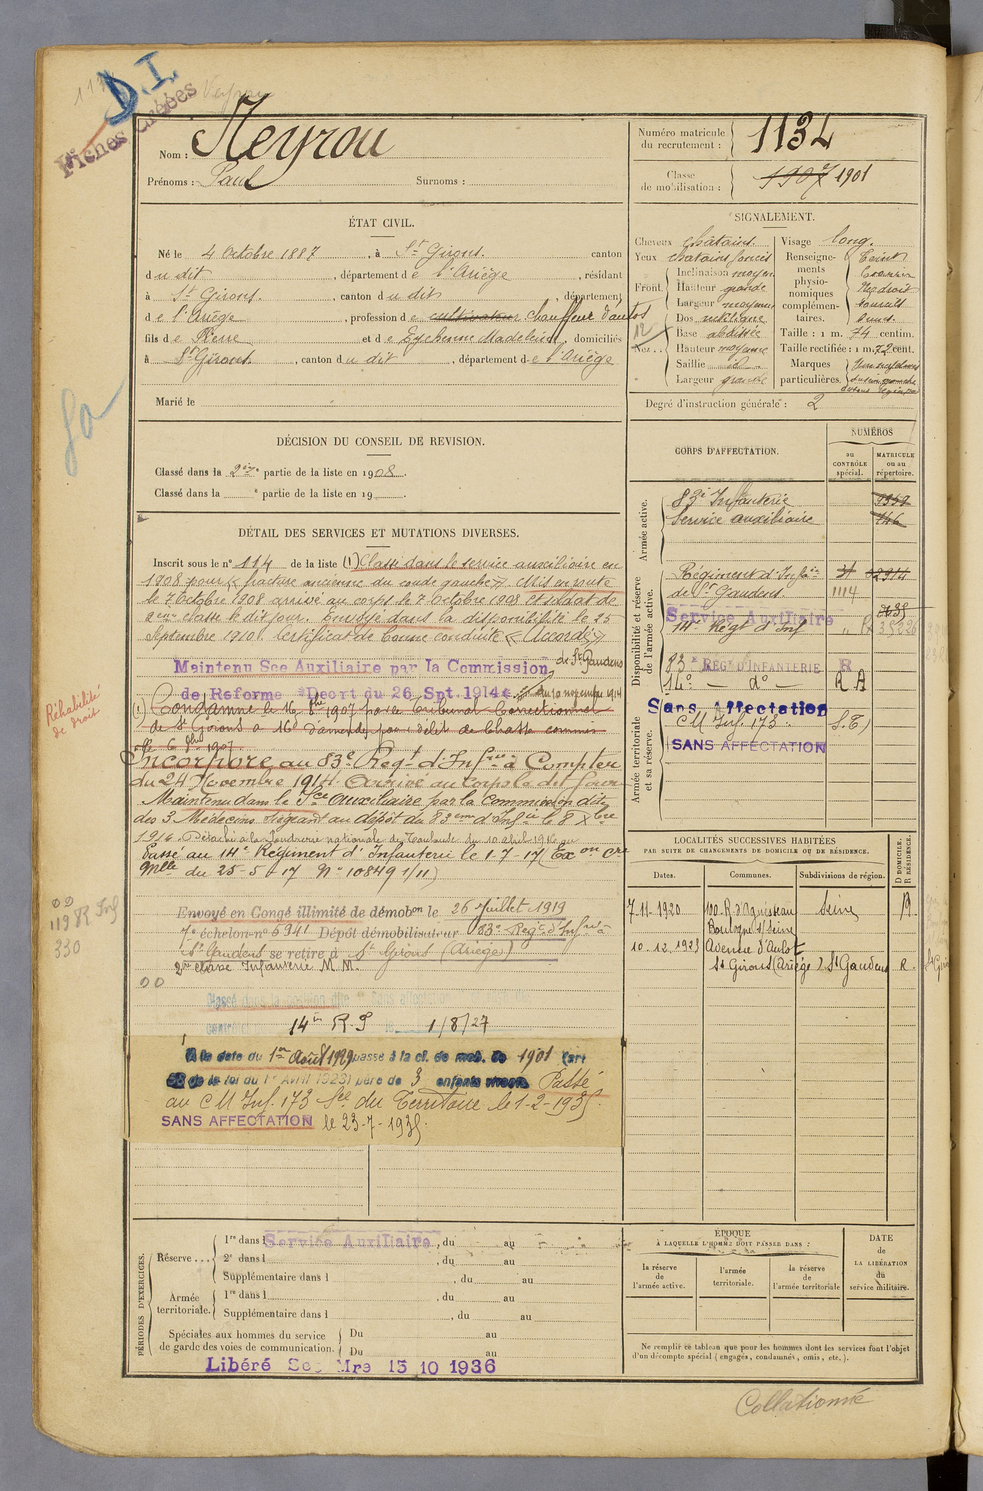 D.I.
Fiches créées
Nom : Neyrou
Prénoms : Paul Surnoms :
Numéro matricule du recrutement : 1134
Classe de mobilisation : 1907 1901
ÉTAT CIVIL.
Né le 4 Octobre 1887, à St Girons. canton
du dit, département de l'Ariège, résidant
à St Girons., canton du dit, département
de l'Ariège, profession de cultivateur chauffeur d'autos
fils de Pierre et de Eychenne Madeleine, domiciliés
à St Girons., canton du dit, département de l'Ariège
Marié le
SIGNALEMENT.
Cheveux châtains.
Yeux châtains foncés
Front. Inclinaison moyen
Hauteur grande
Largeur moyenne
Nez... Dos rectiligne
Base abaissée
Hauteur moyenne
Saillie id
Largeur grande
Visage long.
Renseignements physionomiques complémentaires.
Teint
Taille : 1 m. 74 centim.
Taille rectifiée : 1 m. 72 cent.
Marques particulières.
Degré d'instruction générale : 2
DÉCISION DU CONSEIL DE REVISION.
Classé dans la 2ème partie de la liste en 1908.
Classé dans la e partie de la liste en 19
DÉTAIL DES SERVICES ET MUTATIONS DIVERSES.
Inscrit sous le n° 114 de la liste (1) Classé dans le service auxiliaire en
1908 pour « fracture ancienne du coude gauche ». Mis en route
le 7 Octobre 1908 arrivé au corps le 7 Octobre 1908 et soldat de
2eme classe le dit jour. Envoyé dans la disponibilité le 25
Septembre 1910. Certificat de bonne conduite « Accordé »
Maintenu Sce Auxiliaire par la Commission de St Gaudens
de Reforme Decrt du 26 Spt. 1914 du 10 novembre 1914
(1) Condamné le 16 8bre 1907 par le Tribunal Correctionnel
de St Girons à 16f d'amende pour délit de chasse commis
le 6 1907
Réhabilité de droit
Incorporé au 83e Regt d'Infrie à Compter
du 24 Novembre 1914. Arrivé au corps le dit jour
Maintenu dans le Sce auxiliaire par la Commission dite
des 3 Médecins siégeant au dépôt du 83eme d'Infie le 8 Xbre
1914. Détaché à la Poudrerie nationale de Toulouse du 10 Avril 1916 au
Passé au 14e Régiment d'Infanterie le 1-7-17 (Exon Cre
Mlle du 25-5-17 N° 10849 1/11)
Envoyé en Congé illimité de démobon le 26 Juillet 1919
7e échelon n° 6941 Dépôt démobilisateur 83e Regt d'Infrie à
St Gaudens se retire à St Girons (Ariège)
2me classe Infanterie M.M.
119 R Inf
330
Classé dans la position dite Sans affectation
14e R.I 1/8/27
A la date du 1er Août 1929 passe à la cl. de mob. de 1901 (art
58 de la loi du 1er Avril 1923) père de 3 enfants vivants Passé
au CM Inf. 173 Sce du Territoire le 1-2-1935.
SANS AFFECTATION le 23-7-1935.
CORPS D'AFFECTATION.
NUMÉROS
au CONTRÔLE spécial.
MATRICULE ou au répertoire.
Armée active.
83e Infanterie
Service auxiliaire 146
Disponibilité et réserve de l'armée active.
Régiment d'Infie
de St Gaudens. 1114
Service Auxiliaire
14e Régt d'Inf
83e REGt D'INFANTERIE R
14e — do — R A
Armée territoriale et sa réserve.
Sans Affectation
CM Inf. 173. S.T)
SANS AFFECTATION
LOCALITÉS SUCCESSIVES HABITÉES
PAR SUITE DE CHANGEMENTS DE DOMICILE OU DE RÉSIDENCE.
Dates. Communes. Subdivisions de région. D DOMICILE. R RÉSIDENCE.
7-11-1920 100. R. d'Aguesseau Seine R.
Boulogne s/ Seine
10.12.1923 Avenue d'Aulot
St Girons (Ariège) St Gaudens R.
PÉRIODES D'EXERCICES.
Réserve... 1re dans l Service Auxiliaire, du au
2e dans l, du au
Supplémentaire dans l, du au
Armée territoriale. 1re dans l, du au
Supplémentaire dans l, du au
Spéciales aux hommes du service de garde des voies de communication. Du au
Du au
Libéré Sce Mre 15 10 1936
ÉPOQUE
À LAQUELLE L'HOMME DOIT PASSER DANS :
la réserve de l'armée active.
l'armée territoriale.
la réserve de l'armée territoriale
DATE de LA LIBÉRATION du service militaire.
Ne remplir ce tableau que pour les hommes dont les services font l'objet
d'un décompte spécial (engagés, condamnés, omis, etc.).
Collationné